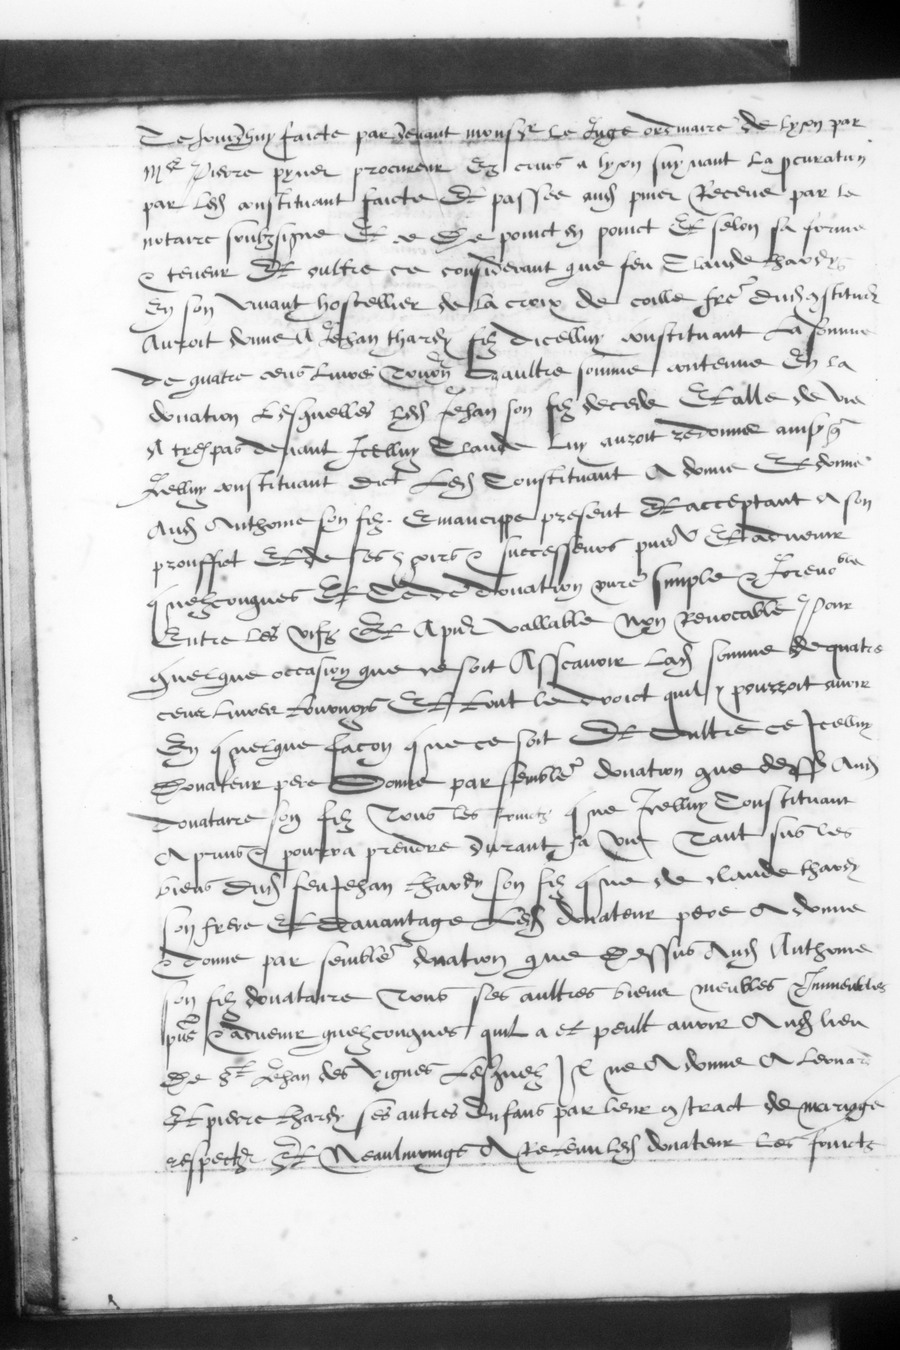 Ce Jourdhuy faicte par devant monsr le Juge ordinaire de lyon par
Me Pierre pyner procureur Ez cours a lyon suyvant La procuration
par Led constituant faicte Et passee aud piner Receue par le
notaire soubzsigne Et de poinct En poinct Et selon sa forme
& teneur Et oultre ce considerant que feu Claude thardy
En son vivant hostellier de la croix de coille frere dud constituant
Auroit donne A Jehan thardy filz dicelluy constituant La somme
de quatre cens Livres Tournoys Daultre somme contenue En la
donation Lesquelles led Jehan son filz decede Et alle de vie
A trespas devant Icelluy Claude Luy auroit redonne ainsy que
Icelluy constituant dict Led Constituant A donne Et donne
Aud Anthome son filz Emancippe present Et acceptant A son
prouffict Et de ses hoirs & successeurs Et advenir
quelzconques Et de donation pure simple & Irrevoble
Entre les vifz Et Apnt vallable Non Revocable Pour
quelque occasion que ce soit Asscavoir Lad somme de quatre
cens Livres tournoys Et tout le droict quil y pourroit avoir
En quelque facon que ce soit Et Oultre ce Icelluy
Donateur pere Donne par semble donation que dessus Aud
donataire son filz Tous les fruictz que Icelluy Constituant
A prins & pourra prendre Durant sa vie Tant sus les
biens Dud feu Jehan thardy son filz que de claude thardy
son frere Et Davantage Led donateur pere A donne
& Donne par semble donation que Dessus Aud Anthome
son filz donataire Tous ses aultres biens meubles & Immeubles
pns & advenir quelzconques quil a et peult avoir Aud lieu
De St Jehan des vignes Lesquelz Il ne A donne A Leonard
Et pierre thardy ses autres Enfans par leur contract de mariage
respectz Et Neaulmoings A Retenu Led donateur les fruictz